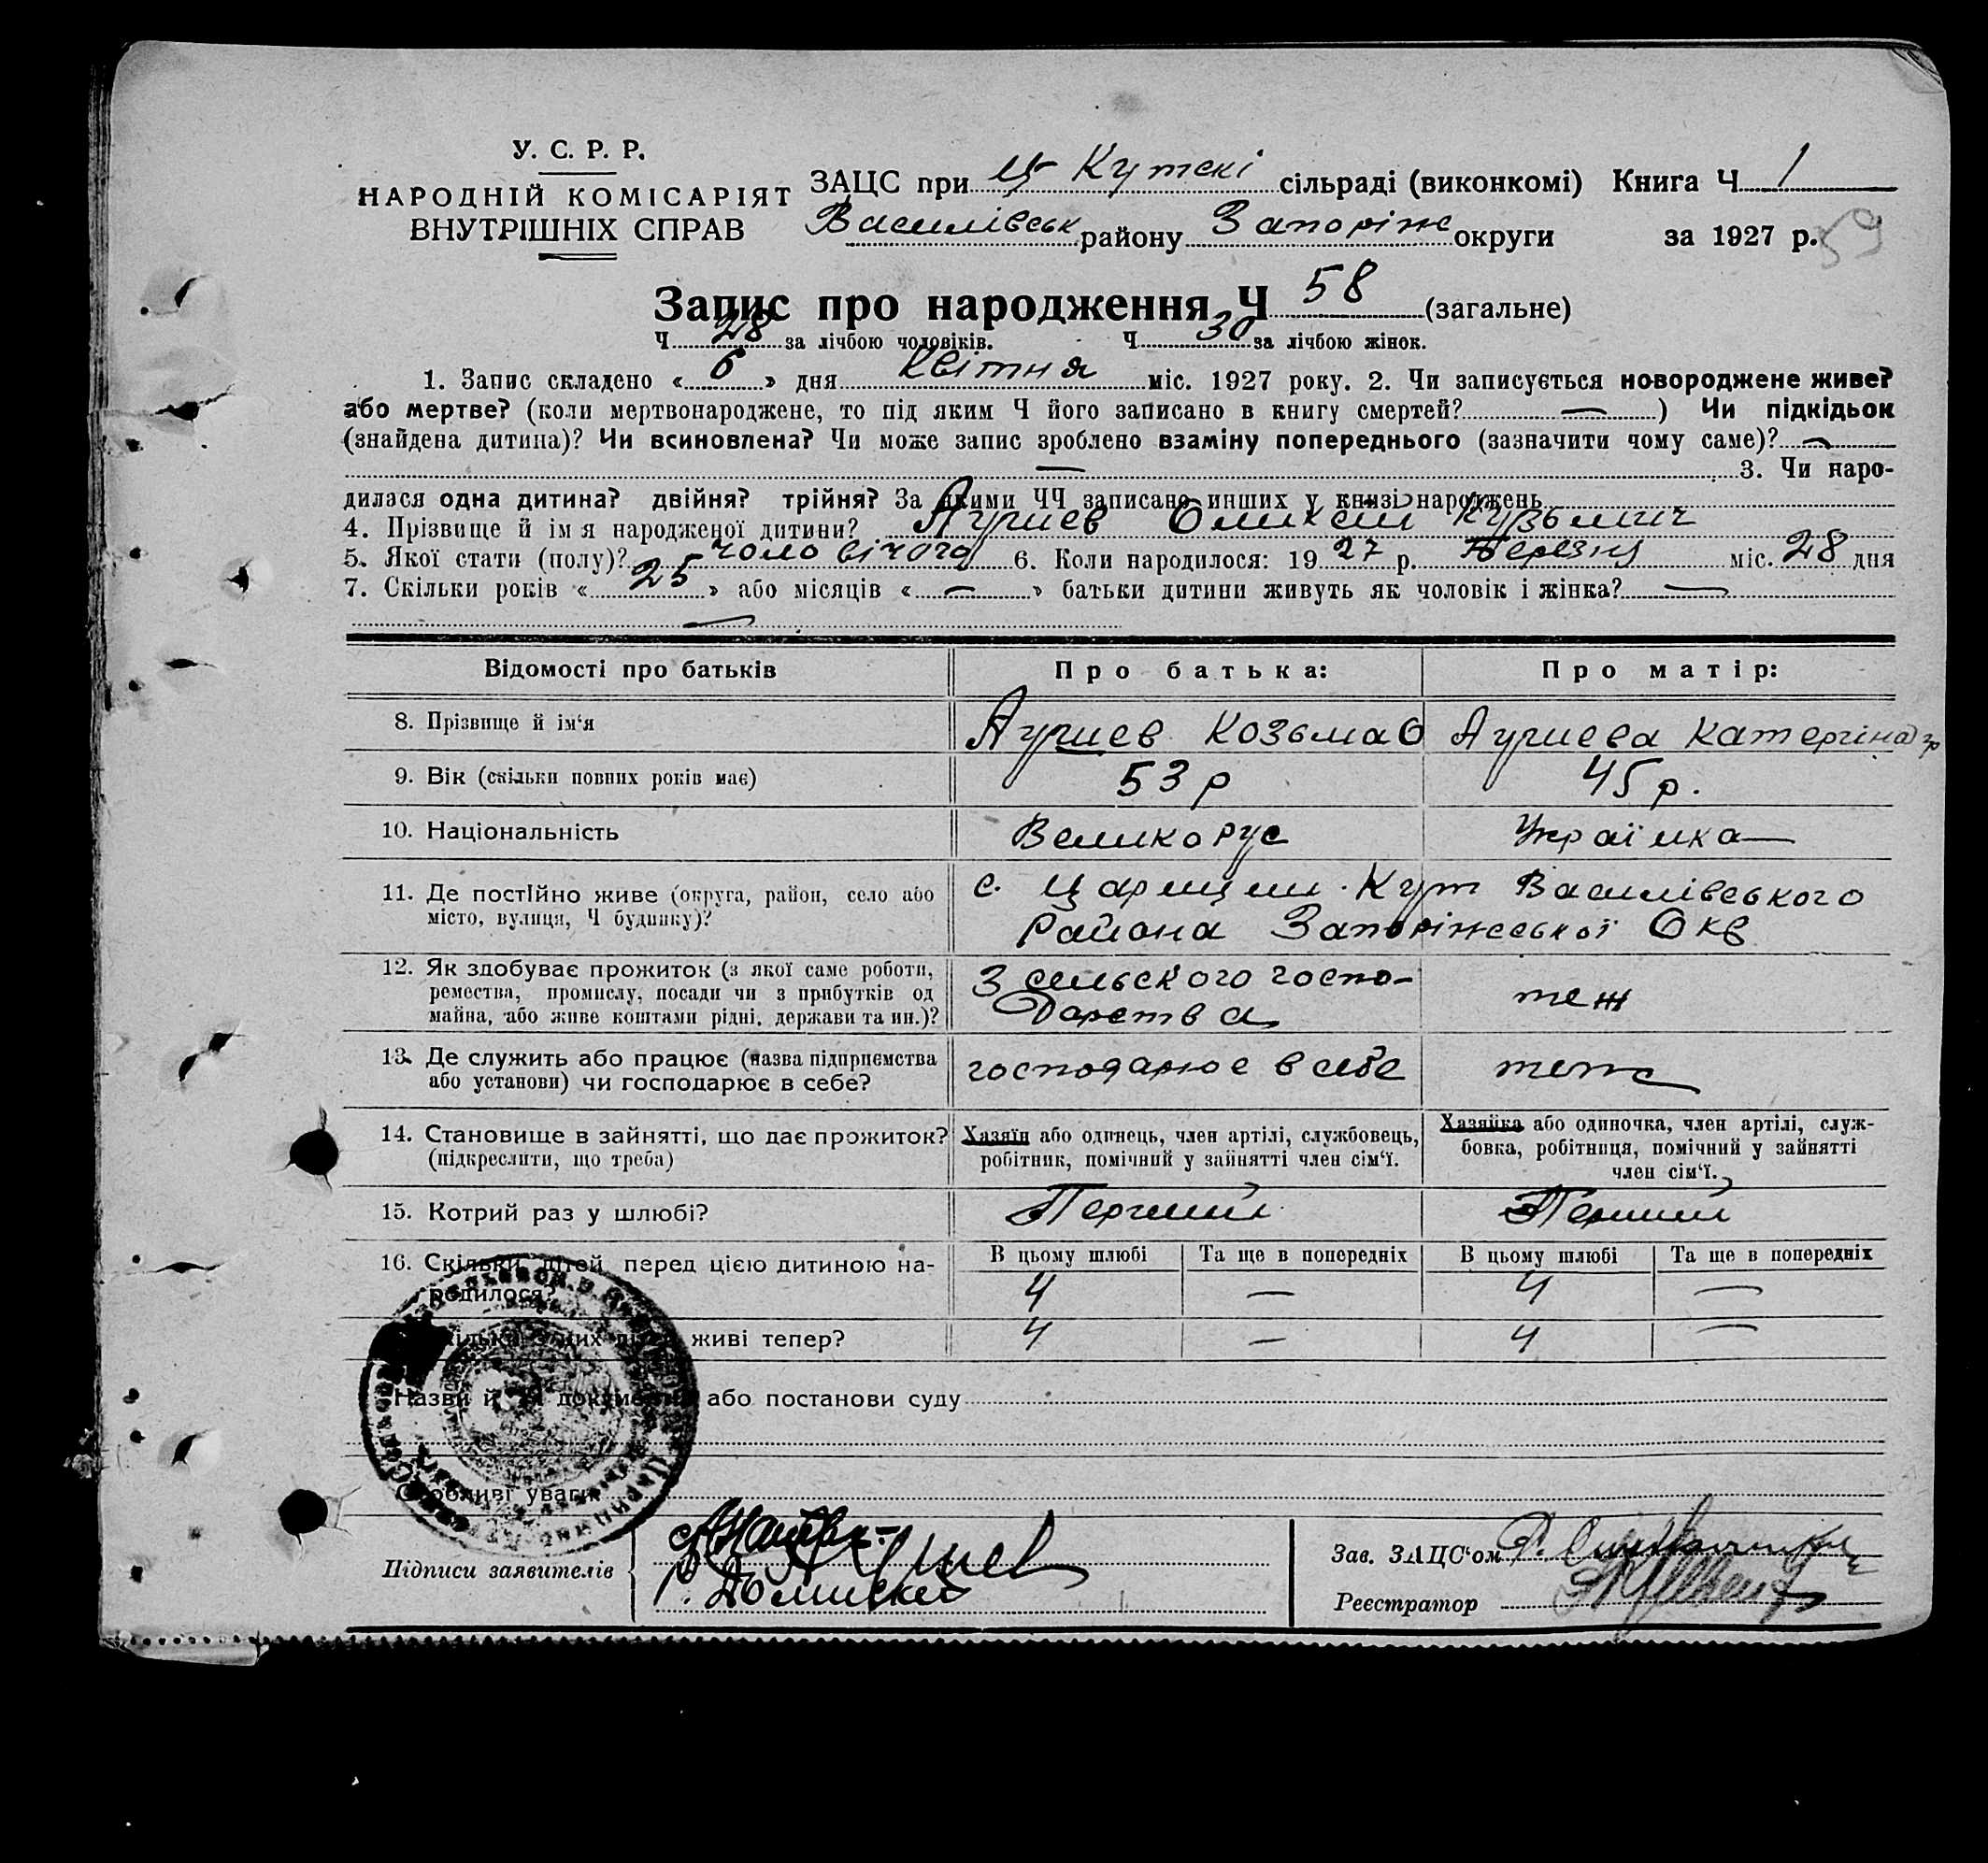 У. С. Р. Р.
НАРОДНІЙ КОМІСАРІЯТ
ВНУТРІШНІХ СПРАВ
ЗАЦС при Ц-Кутскі сільраді (виконкомі) Книга Ч 1
Василівськ району Запоріж округи за 1927 р. 59
Запис про народження Ч 58 (загальне)
Ч 28 за лічбою чоловіків. Ч 30 за лічбою жінок.
1. Запис складено « 6 » дня Квітня міс. 1927 року. 2. Чи записується новороджене живе?
або мертве? (коли мертвонароджене, то під яким Ч його записано в книгу смертей? — ) Чи підкідьок
(знайдена дитина)? Чи всиновлена? Чи може запис зроблено взаміну попереднього (зазначити чому саме)? —
— 3. Чи наро-
дилася одна дитина? двійня? трійня? За якими ЧЧ записано инших у книзі народжень
4. Прізвище й ім я народженої дитини? Кузьмич
5. Якої стати (полу)? чоловічого 6. Коли народилося: 19 27 р. Березня міс. 28 дня
7. Скільки років « 25 » або місяців « — » батьки дитини живуть як чоловік і жінка? —
—
Відомості про батьків Про батька: Про матір:
8. Прізвище й ім'я Козьма Катеріна
9. Вік (скільки повних років має) 53 р 45 р.
10. Національність Великорус Українка
11. Де постійно живе (округа, район, село або с. Царицин-Кут Василівського
місто, вулиця, Ч будинку)? Района Запоріжської Окр
12. Як здобуває прожиток (з якої саме роботи, З сельского госпо-
ремества, промислу, посади чи з прибутків од дарства теж
майна, або живе коштами рідні, держави та ин.)?
13. Де служить або працює (назва підприємства господарює в себе теж
або установи) чи господарює в себе?
14. Становище в зайнятті, що дає прожиток? Хазяїн або одинець, член артілі, службовець, Хазяйка або одиночка, член артілі, служ-
(підкреслити, що треба) робітник, помічний у зайнятті член сім'ї. бовка, робітниця, помічний у зайнятті
член сім'ї.
15. Котрий раз у шлюбі? Перший Перший
16. Скільки дітей перед цією дитиною на- В цьому шлюбі Та ще в попередніх В цьому шлюбі Та ще в попередніх
родилося? 4 — 4 —
Скільки з них дітей живі тепер? 4 — 4 —
Назви й Ч документів або постанови суду
Особливі уваги
Підписи заявителів
Зав. ЗАЦС'ом
Реєстратор